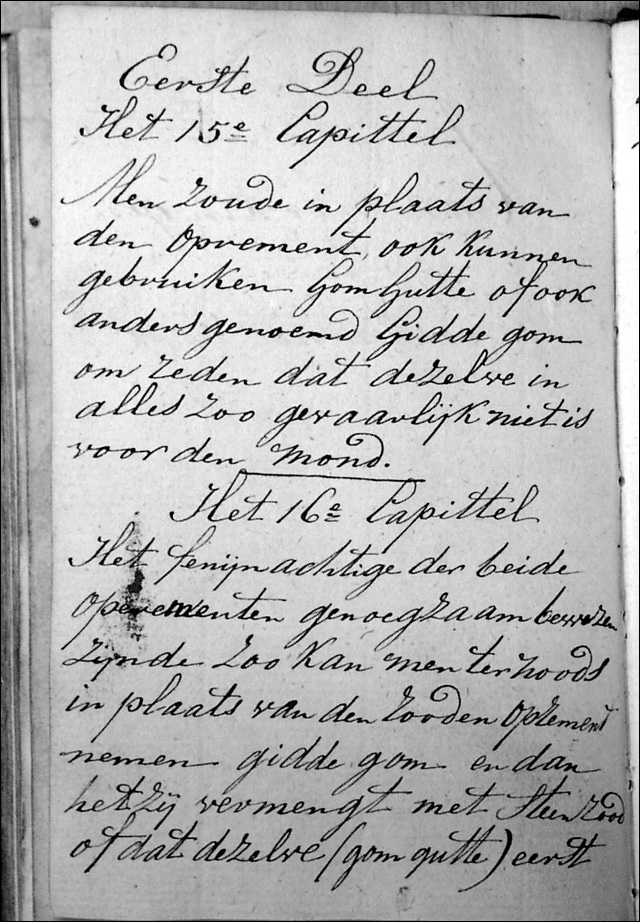 Eerste Deel
Het 15e Capittel
Men zoude in plaats van
den Oprement, ook kunnen
gebruiken Gom Gutte of ook
anders genoemd Gidde gom
om reden dat dezelve in
alles zoo gevaarlijk niet is
voor den mond.
Het 16e Capittel
Het fenijnachtige der beide
operementen genoegzaam bewezen
zijnde zoo kan men ter noods
in plaats van den rooden Oprement
nemen gidde gom en dan
hetzij vermengt met Steenrood
of dat dezelve (gom gutte) eerst